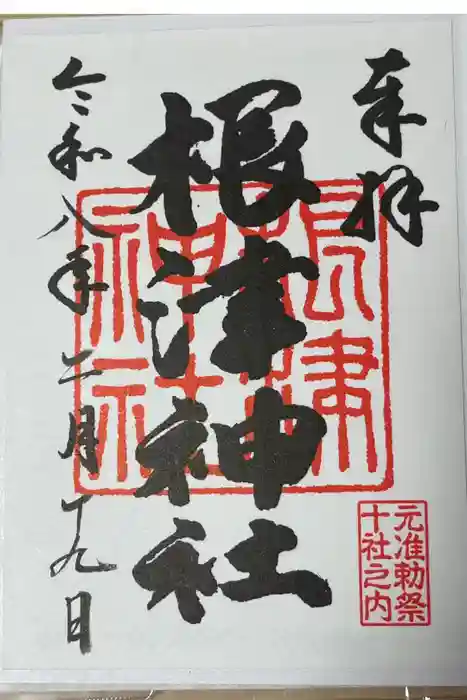 奉拝
根津神社
根津
神社
元准勅祭
十社之内
令和八年二月十九日